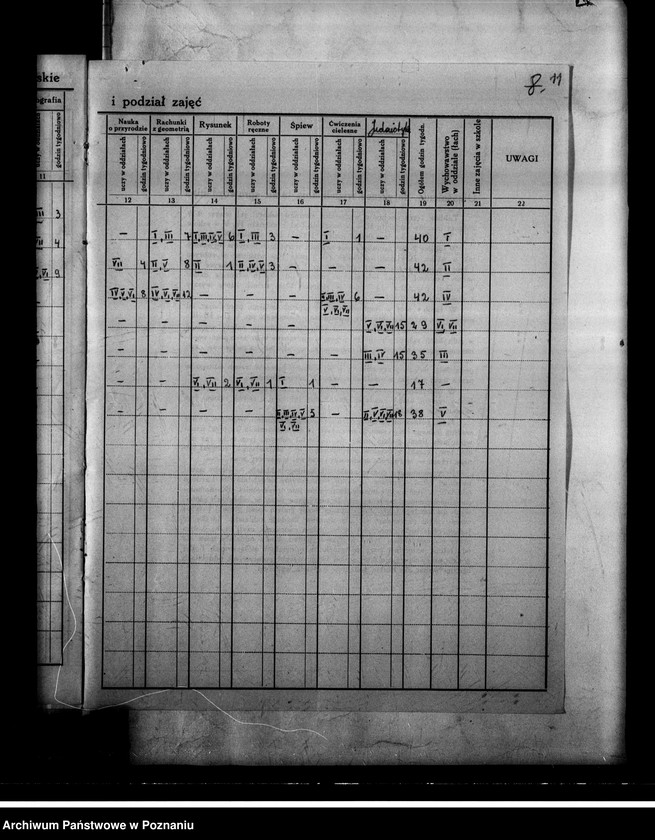 8. 11
skie
i podział zajęć
ografia
Nauka o przyrodzie
Rachunki z geometrią
Rysunek
Roboty ręczne
Śpiew
Ćwiczenia cielesne
Ogółem godzin tygodn.
Wychowawstwo w oddziale (łach)
Inne zajęcia w szkole
UWAGI
godzin tygodniowo
uczy w oddziałach godzin tygodniowo
uczy w oddziałach godzin tygodniowo
uczy w oddziałach godzin tygodniowo
uczy w oddziałach godzin tygodniowo
uczy w oddziałach godzin tygodniowo
uczy w oddziałach godzin tygodniowo
uczy w oddziałach godzin tygodniowo
11 12 13 14 15 16 17 18 19 20 21 22
III 3 — I, III 7 I, III, IV, V 6 I, III 3 — I 1 — 40 I
VII 4 VII 4 II, V 8 II 1 II, IV, V 3 — — — 42 II
VI 9 IV, V, VI 8 IV, VI, VII 12 — — — II, III, IV 6 — 42 IV
V, VI, VII
— — — — — — V, VI, VII 15 29 VI VII
— — — — — — III, IV 15 35 III
— — VI, VII 2 VI, VII 1 I 1 — — 17 —
— — — — II, III, IV, V 5 — II, V, VI, VII 18 38 V
VI, VII
Archiwum Państwowe w Poznaniu